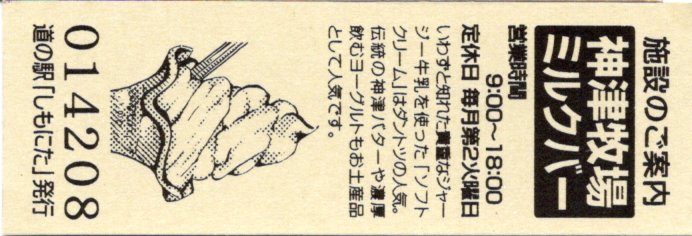 施設のご案内
神津牧場
ミルクバー
営業時間
9:00〜18:00
定休日 毎月第2火曜日
いわずと知れた貴重なジャー
ジー牛乳を使った「ソフト
クリーム」はダントツの人気。
伝統の神津バターや濃厚
飲むヨーグルトもお土産品
として人気です。
014208
道の駅「しもにた」発行